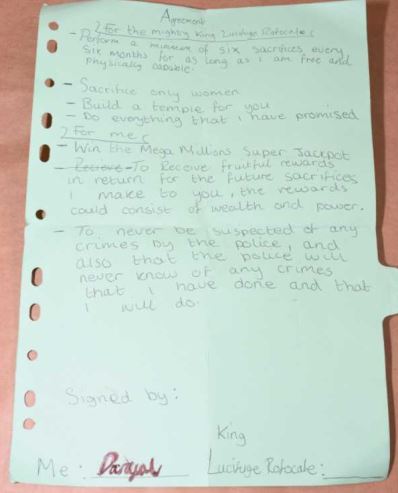 Agreement
? For the mighty King Lucifuge Rofocale :
- Perform a minimum of six sacrifices every
six months for as long as I am free and
physically capable.
- Sacrifice only women
- Build a temple for you
- Do everything that I have promised
? For me :
- Win the Mega Millions Super Jackpot
- Recieve To Receive fruitful rewards
in return for the future sacrifices
I make to you, the rewards
could consist of wealth and power.
- To never be suspected of any
crimes by the police, and
also that the police will
never know of any crimes
that I have done and that
I will do.
Signed by:
King
Me: Danyal Lucifuge Rofocale: